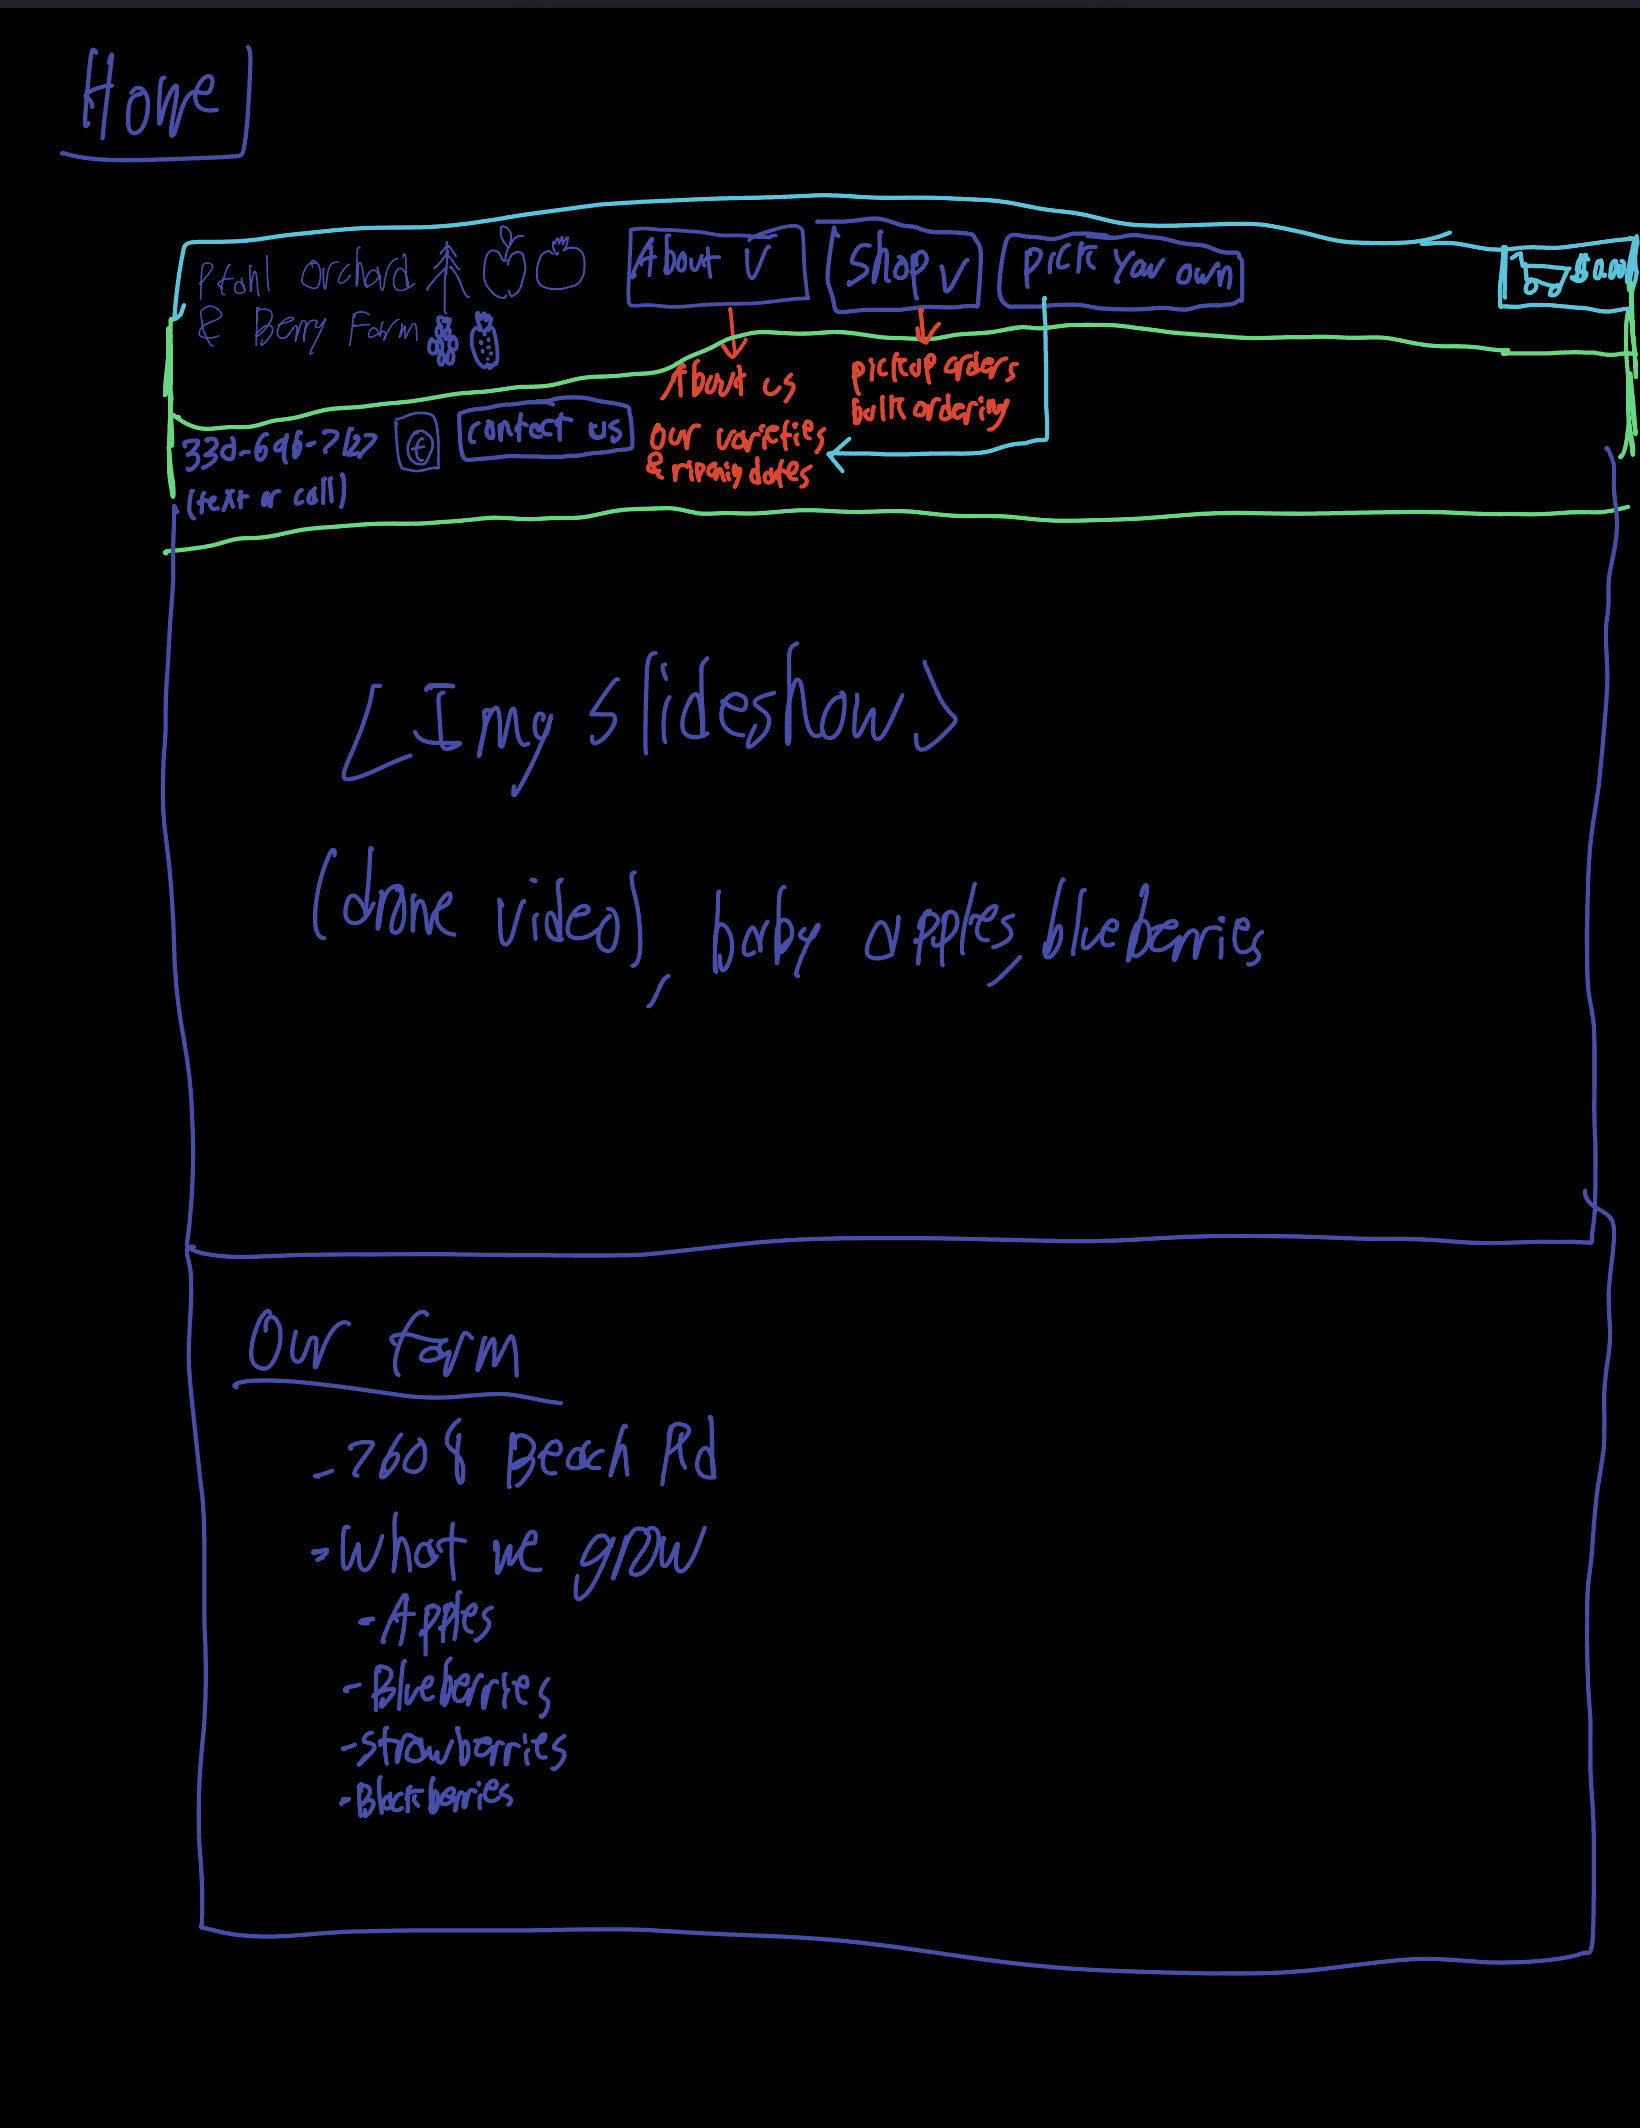 Home
Pfahl Orchard
& Berry Farm
About v
Shop v
Pick Your own
$0.00
About us
our varieties
& ripening dates
pickup orders
bulk ordering
(text or call)
f
contact us
<Img slideshow>
(drone video), baby apples, blueberries
Our farm
- 7608 Beach Rd
- What we grow
- Apples
- Blueberries
- strawberries
- Blackberries